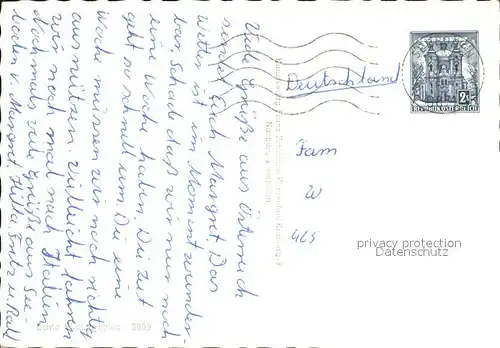 Viele Grüße aus Österreich
sendet Euch Margret. Das
Wetter ist im Moment wunder-
bar. Schade daß wir nur noch
eine Woche haben. Die Zeit
geht so schnell um. Die eine
Woche müssen wir noch richtig
ausnützen. Vielleicht fahren
wir noch mal nach Italien
doch mals viele Grüße aus See-
boden v. Margret, Hilla, Fritz u. Ralf
Deutschland
Fam
W
465
2S
REPUBLIK ÖSTERREICH
privacy protection
Datenschutz
5859